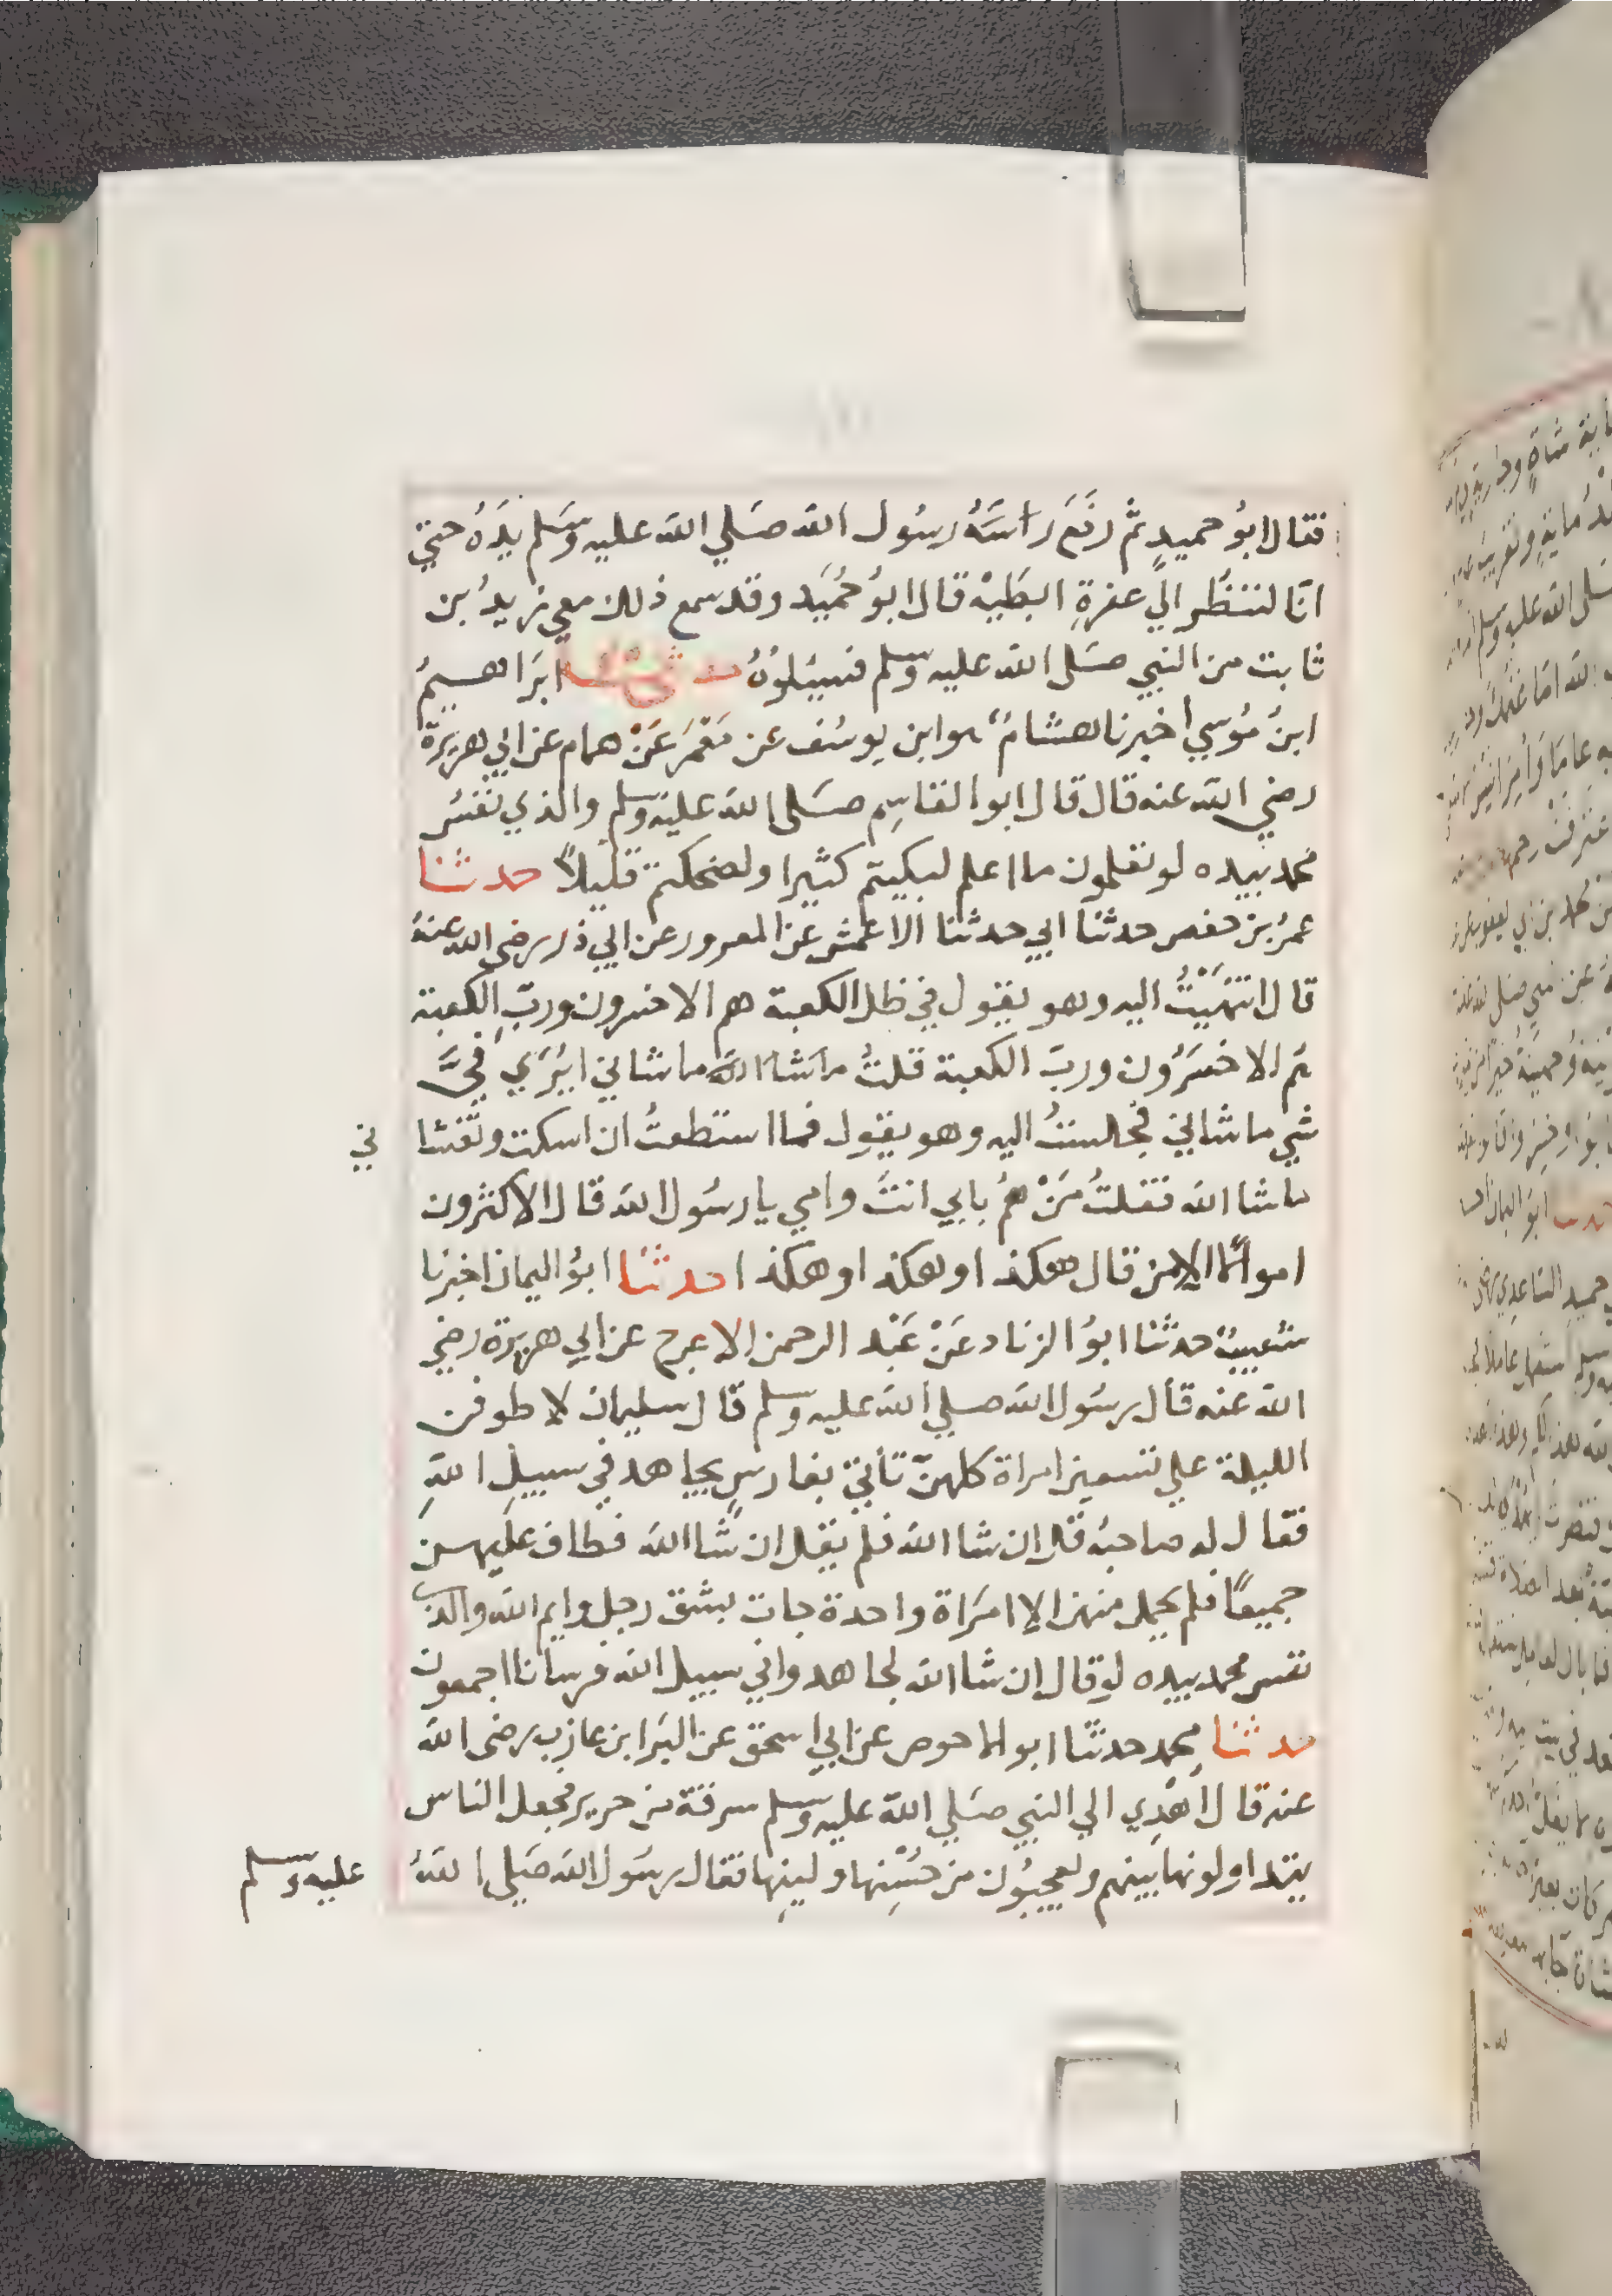 فقال ابُو حميدٍ ثم رفَعَ راسَهُ رسُول الله صَلي الله عليه وسَلم يدَهُ حتي
انا لننظُر الي عفرةِ ابطَيْه قال ابوُ حُمَيَد وقد سمع ذلك معي زيدُ بن
ثابت من النبي صَلى الله عليه وسلم فسَيَلوُهُ حدثني ابرَاهسيمُ
ابنُ مُوسي أخبرنا هشامُ هوابن يوسُف عن مَعْمَر عَنْ همام عن ابي هريرة
رضي الله عنه قال قال ابو القاسِم صَلى الله عليْه وسلم والذي نفسُ
محمد بيده لو تعلمون ما اعلم لبكيتم كثيرا ولضحكتم قليلاً حدثنا
عمرُ بن حفص حدثنا ابي حدثنا الاعمش عن المعرور عن ابي ذر رضى الله عنهُ
قال انتهَيْتُ اليه وهو يقول في ظل الكعبة هم الاخسرون وربِّ الكعبة
هم الاخسَرُون وربّ الكعبة قلتُ ماشاالله ماشاني ايُرَي فيَّ
شي ماشاني فجالستُ اليه وهو يقول فما استطعتُ ان اسكت وتغشا ني
ماشا الله فقلتُ مَنْ همُ بابي انتَ وامي يا رسُول الله قال الاكثرون
اموالًا الا من قال هكذ او هكذ او هكذ ا حدثنا ابوُ اليمان اخبرنا
شعيبٌ حدثنا ابوُ الزناد عَنْ عَبْد الرحمن الاعرج عن ابي هريرة رضي
الله عَنه قال رسُول الله صلي الله عليه وسلم قال سليمان لاطوفن
الليلة علي تسعين امراة كلهنّ تأتي بفارسٍ يجاهد في سبيلِ اللهِ
فقال له صاحبهُ قل ان شا الله فلم يقل ان شَا الله فطاف عليهسن
جميعًا فلم يحمل منهن الا امرَاة واحدة جات بشق رجل وايم الله والذي
نفس محمد بيده لو قال ان شا الله لجاهدوا في سبيل الله فرسانا اجمعون
حدثنا محمد حدثنا ابو الاحوص عن ابي اسحق عن البَرا ابن عازب رضى الله
عنه قال اهْدِي الي النبي صَلي الله عليه وسلم سرقة من حرير فجعل الناس
يتداولونها بَينهم ويعجبُون من حُسْنِها ولينِها فقال رسَول الله صَلي اللهُ عليه وسلم